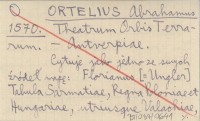 O ORTELIUS Abrahamus
1570. Theatrum Orbis Terra-
rum. – Antverpiae.
Cytuje jako jedno ze swych
źródeł mapę: Florianus [= Ungler]
Tabula Sarmatiae, Regna Poloniae et
Hungariae, utriusque Valachiae,